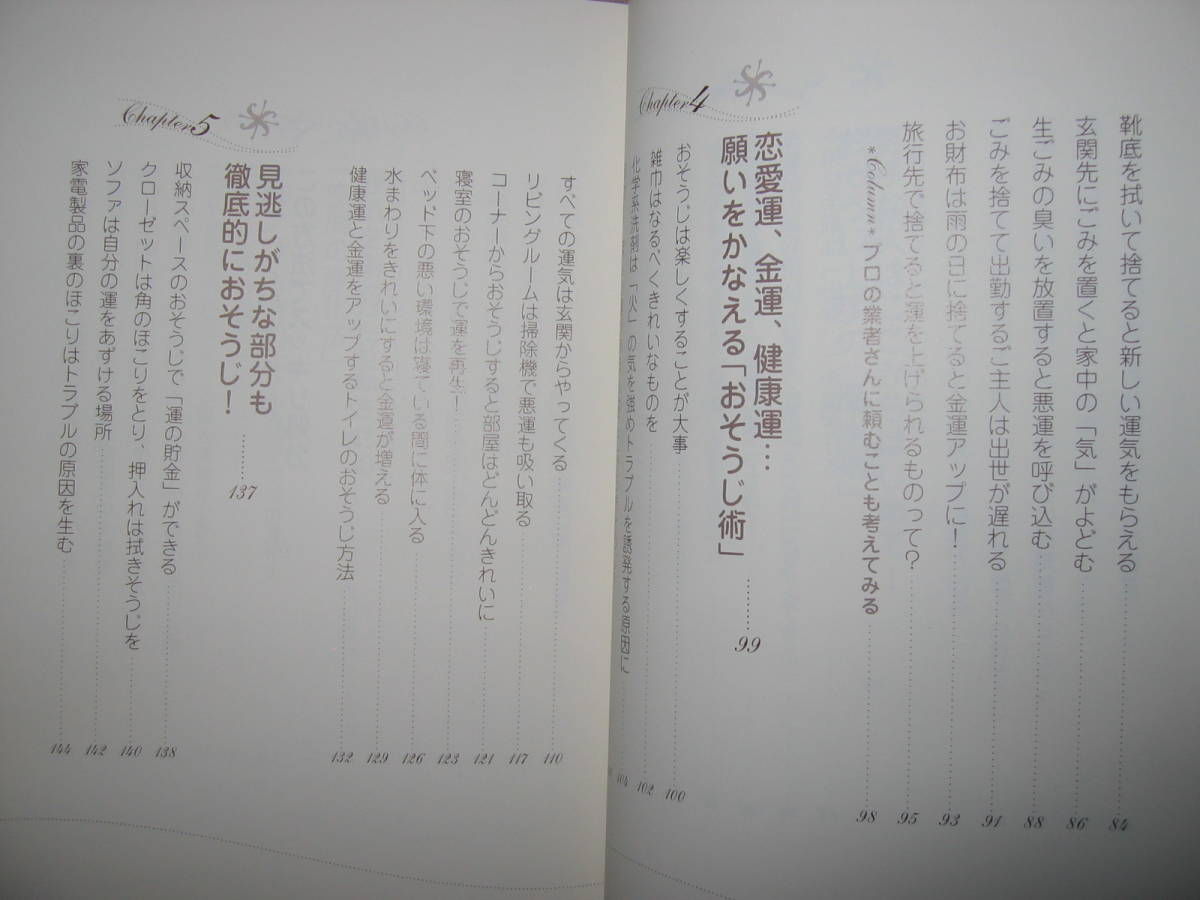 靴底を拭いて捨てると新しい運気をもらえる 84
玄関先にごみを置くと家中の「気」がよどむ 86
生ごみの臭いを放置すると悪運を呼び込む 88
ごみを捨てて出勤するご主人は出世が遅れる 91
お財布は雨の日に捨てると金運アップに! 93
旅行先で捨てると運を上げられるものって? 95
*Column*プロの業者さんに頼むことも考えてみる 98
Chapter4
恋愛運、金運、健康運…
願いをかなえる「おそうじ術」 99
おそうじは楽しくすることが大事 100
雑巾はなるべくきれいなものを 102
化学系洗剤は「火」の気を強めトラブルを誘発する原因に 104
すべての運気は玄関からやってくる 110
リビングルームは掃除機で悪運も吸い取る 117
コーナーからおそうじすると部屋はどんどんきれいに 121
寝室のおそうじで運を再生! 123
ベッド下の悪い環境は寝ている間に体に入る 126
水まわりをきれいにすると金運が増える 129
健康運と金運をアップするトイレのおそうじ方法 132
Chapter5
見逃しがちな部分も
徹底的におそうじ! 137
収納スペースのおそうじで「運の貯金」ができる 138
クローゼットは角のほこりをとり、押入れは拭きそうじを 140
ソファは自分の運をあずける場所 142
家電製品の裏のほこりはトラブルの原因を生む 144